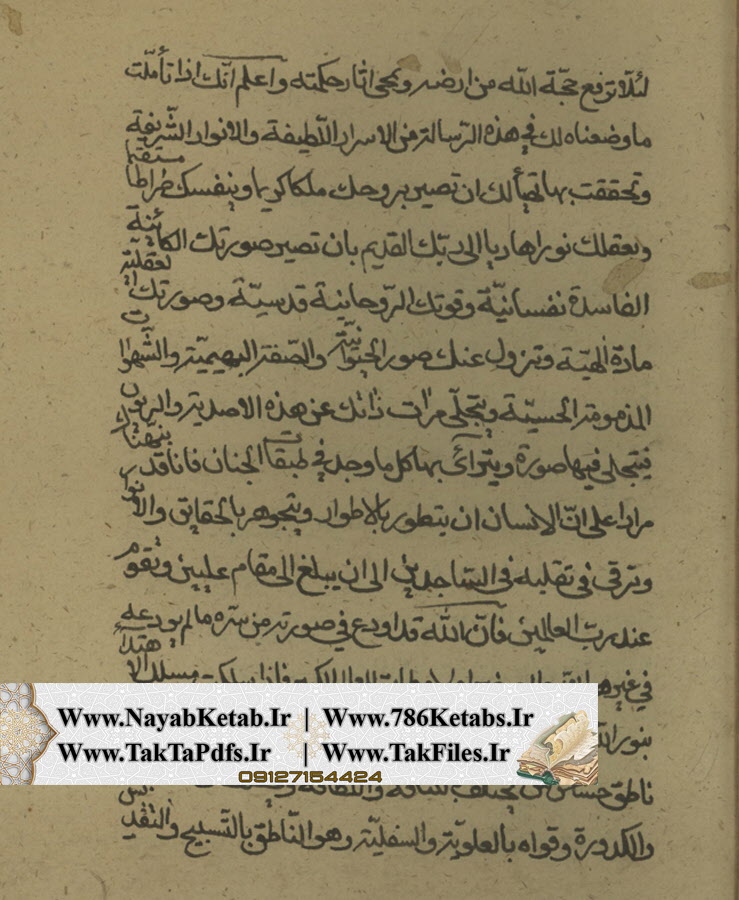 لئلا ترفع حجّة الله من ارضه ويمحى اثار حكمته واعلم انّك اذا تأمّلت
ما وضعناه لك في هذه الرّسالة من الاسرار اللّطيفة والانوار الشّريفة
وتحققت بها تهيأ لك ان تصير بروحك ملكا كريما وبنفسك صراطا مستقيما
وبعقلك نورا هاديا الى ربّك القديم بان تصير صورتك الكائنة
الفاسدة نفسانيّة وقوتك الرّوحانية قدسيّة وصورتك العقليّة
مادة الهيّة وتزول عنك صور الحيوانيّة والصّفة البهيميّة والشّهوات
المذمومة الحسيّة ويتجلّى مرات ذاتك عن هذه الاصدية والريون
فيتجلى فيها صورة ويترآئى بها كل ما وجد في طبقات الجنان فانا قد
مرارا على انّ الانسان ان يتطور بالاطوار ويتجوهر بالحقايق والانوار
وترقى في تقلبه في السّاجدين الى ان يبلغ الى مقام عليين وتقوم
عند ربّ العالمين فانّ الله قد اودع في صورته من سرّه ما لم يودعه
في غير
بنور
ناطق حسّاس
والكدورة وقواه بالعلويّة والسفليّة وهو النّاطق بالتّسبيح والتّقديس
Www.NayabKetab.Ir | Www.786Ketabs.Ir
Www.TakTaPdfs.Ir | Www.TakFiles.Ir
09127154424